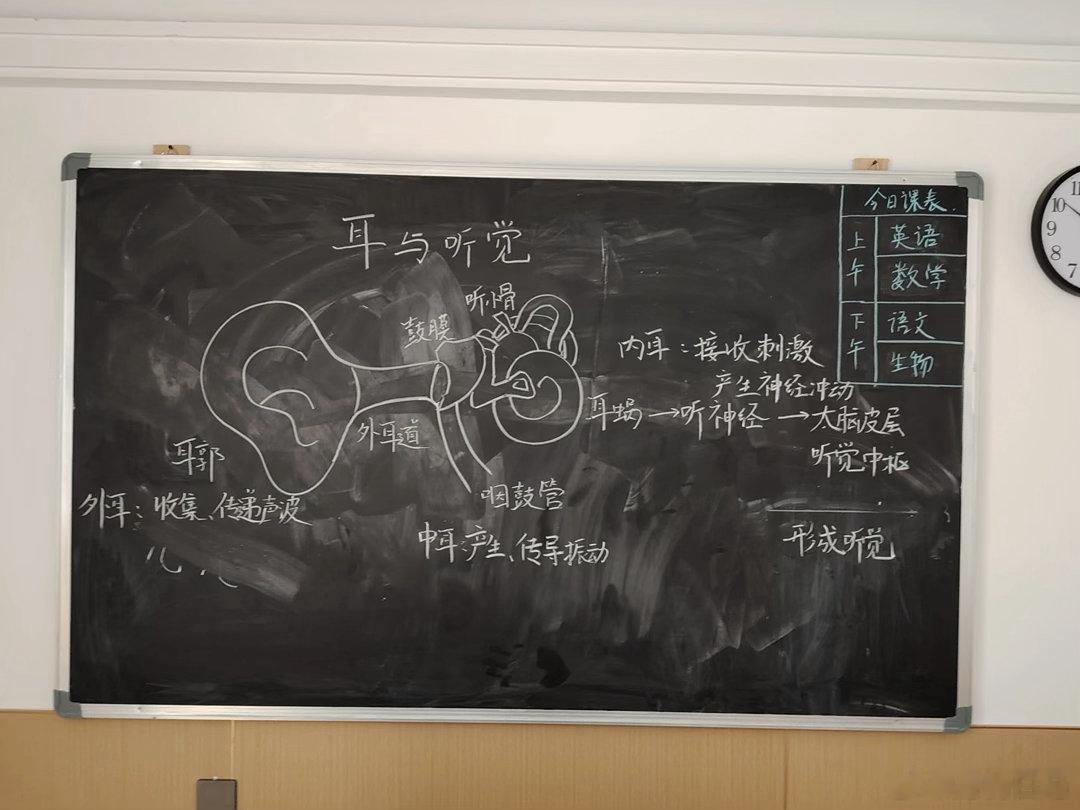 耳与听觉
听小骨
鼓膜
外耳道
耳郭
咽鼓管
外耳：收集、传递声波
中耳：产生、传导振动
内耳：接收刺激
产生神经冲动
耳蜗→听神经→大脑皮层
听觉中枢
形成听觉
今日课表.
上午
英语
数学
下午
语文
生物
11
10
9
8
7